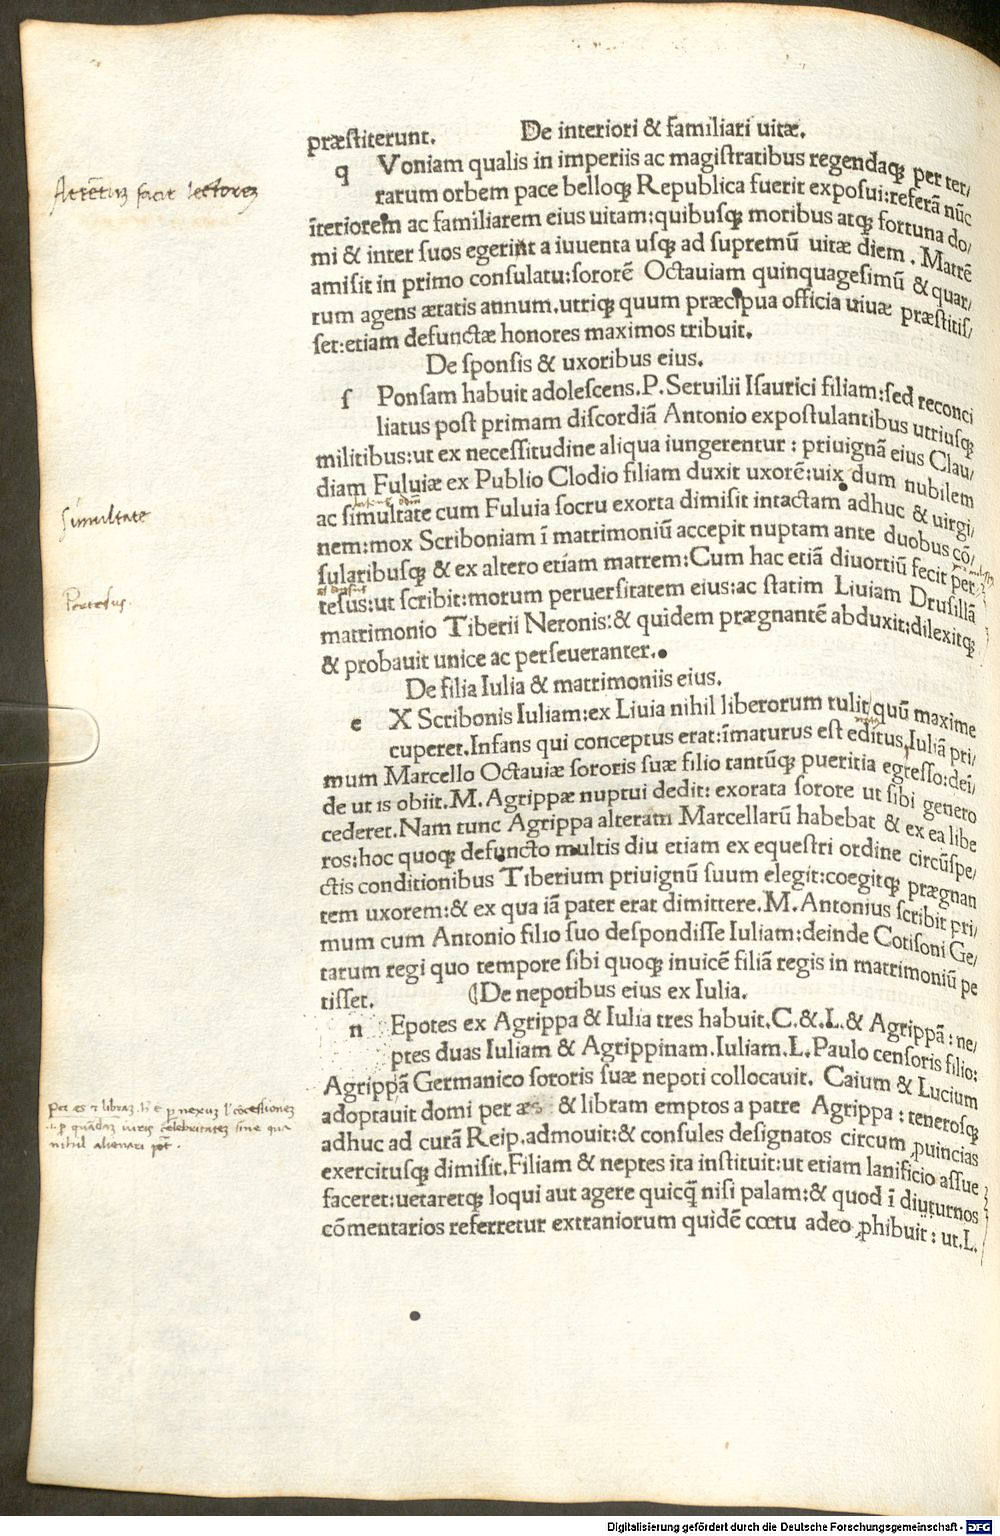 præstiterunt. De interiori & familiari uitæ.
q Voniam qualis in imperiis ac magistratibus regendaqꝫ per ter/
rarum orbem pace belloqꝫ Republica fuerit exposui:referã nũc
ĩteriorem ac familiarem eius uitam:quibusqꝫ moribus atqꝫ fortuna do/
mi & inter suos egerint a iuuenta usqꝫ ad supremũ uitæ diem. Matrẽ
amisit in primo consulatu:sororẽ Octauiam quinquagesimũ & quar/
tum agens ætatis annum.utriqꝫ quum præcipua officia uiuæ præstitis/
set:etiam defunctæ honores maximos tribuit.
De sponsis & uxoribus eius.
ſ Ponsam habuit adolescens.P.Seruilii Isaurici filiam:sed reconci
liatus post primam discordiã Antonio expostulantibus utriusqꝫ
militibus:ut ex necessitudine aliqua iungerentur : priuignã eius Clau/
diam Fuluiæ ex Publio Clodio filiam duxit uxorẽ:uix dum nubilem
ac simultate cum Fuluia socru exorta dimisit intactam adhuc & uirgi/
nem:mox Scriboniam ĩ matrimoniũ accepit nuptam ante duobus cõ/
sularibusqꝫ & ex altero etiam matrem:Cum hac etiã diuortiũ fecit per
tesus:ut scribit:morum peruersitatem eius:ac statim Liuiam Drusillã
matrimonio Tiberii Neronis:& quidem prægnantẽ abduxit:dilexitqꝫ
& probauit unice ac perseueranter.
De filia Iulia & matrimoniis eius.
e X Scribonis Iuliam:ex Liuia nihil liberorum tulit quũ maxime
cuperet.Infans qui conceptus erat:ĩmaturus est editus.Iuliã pri/
mum Marcello Octauiæ sororis suæ filio tantũqꝫ pueritia egresso:deĩ/
de ut is obiit.M.Agrippæ nuptui dedit: exorata sorore ut sibi genero
cederet.Nam tunc Agrippa alteram Marcellarũ habebat & ex ea libe
ros:hoc quoqꝫ defuncto multis diu etiam ex equestri ordine circũspe/
ctis conditionibus Tiberium priuignũ suum elegit:coegitqꝫ prægnan
tem uxorem:& ex qua iã pater erat dimittere.M.Antonius scribit pri/
mum cum Antonio filio suo despondisse Iuliam:deinde Cotisoni Ge/
tarum regi quo tempore sibi quoqꝫ inuicẽ filiã regis in matrimoniũ pe
tisset. De nepotibus eius ex Iulia.
n Epotes ex Agrippa & Iulia tres habuit.C.&.L.& Agrippã : ne/
ptes duas Iuliam & Agrippinam.Iuliam.L.Paulo censoris filio:
Agrippã Germanico sororis suæ nepoti collocauit. Caium & Lucium
adoptauit domi per æs & libram emptos a patre Agrippa : tenerosqꝫ
adhuc ad curã Reip.admouit:& consules designatos circum ꝓuincias
exercitusqꝫ dimisit.Filiam & neptes ita instituit:ut etiam lanificio assue
faceret:uetaretqꝫ loqui aut agere quicq̃ nisi palam:& quod ĩ diuturnos
cõmentarios referretur extraniorum quidẽ cœtu adeo ꝓhibuit : ut.L.
Attẽtuꝫ facit lectoreꝫ
Simultate
Pertesus.
Digitalisierung gefördert durch die Deutsche Forschungsgemeinschaft - DFG